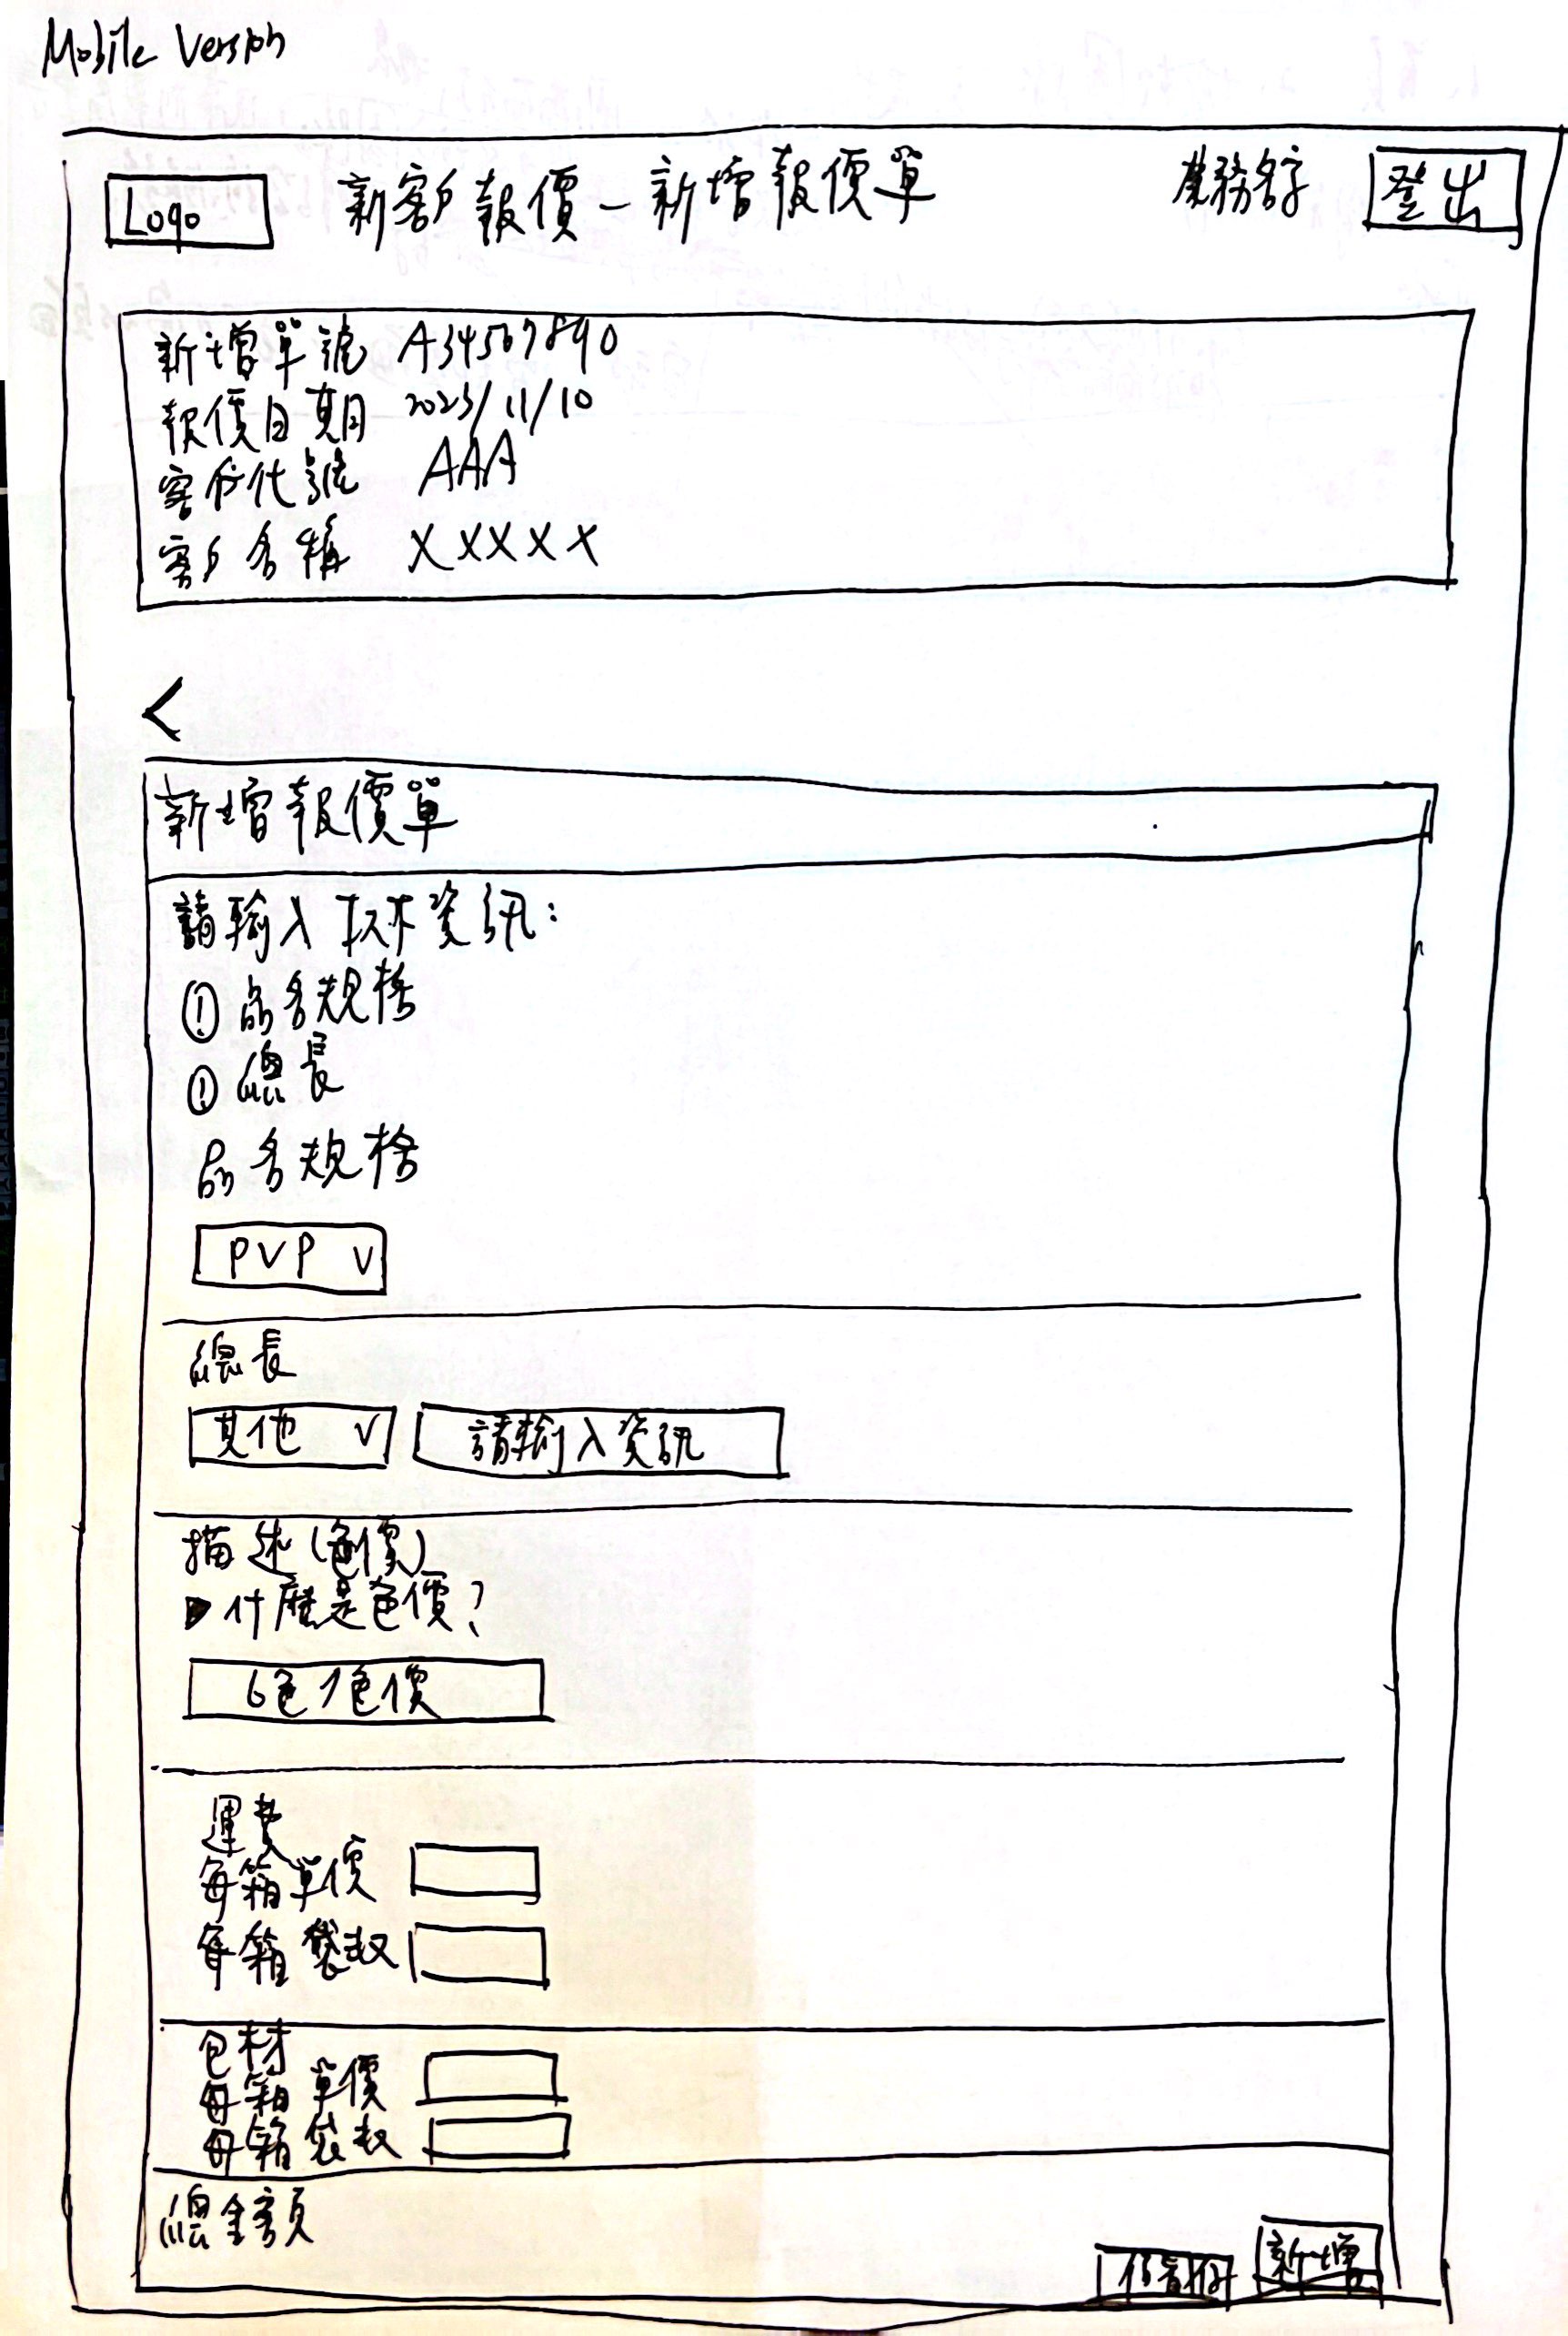 Mobile Version
Logo 新客戶報價-新增報價單 業務名字 登出
新增單號 A34567890
報價日期 2023/11/10
客戶代號 AAA
客戶名稱 XXXXX
<
新增報價單
請輸入 資訊:
① 品名規格
① 總長
品名規格
PVP V
總長
其他 V 請輸入資訊
描述(色價)
▶什麼是色價?
6色1色價
運費
每箱單價
每箱袋數
包材
每箱單價
每箱袋數
總金額
新增